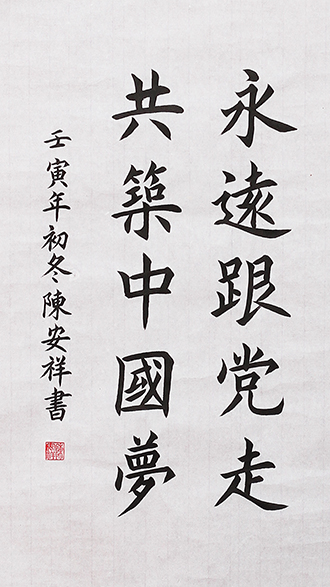 永遠跟党走
共築中國夢
壬寅年初冬陳安祥書